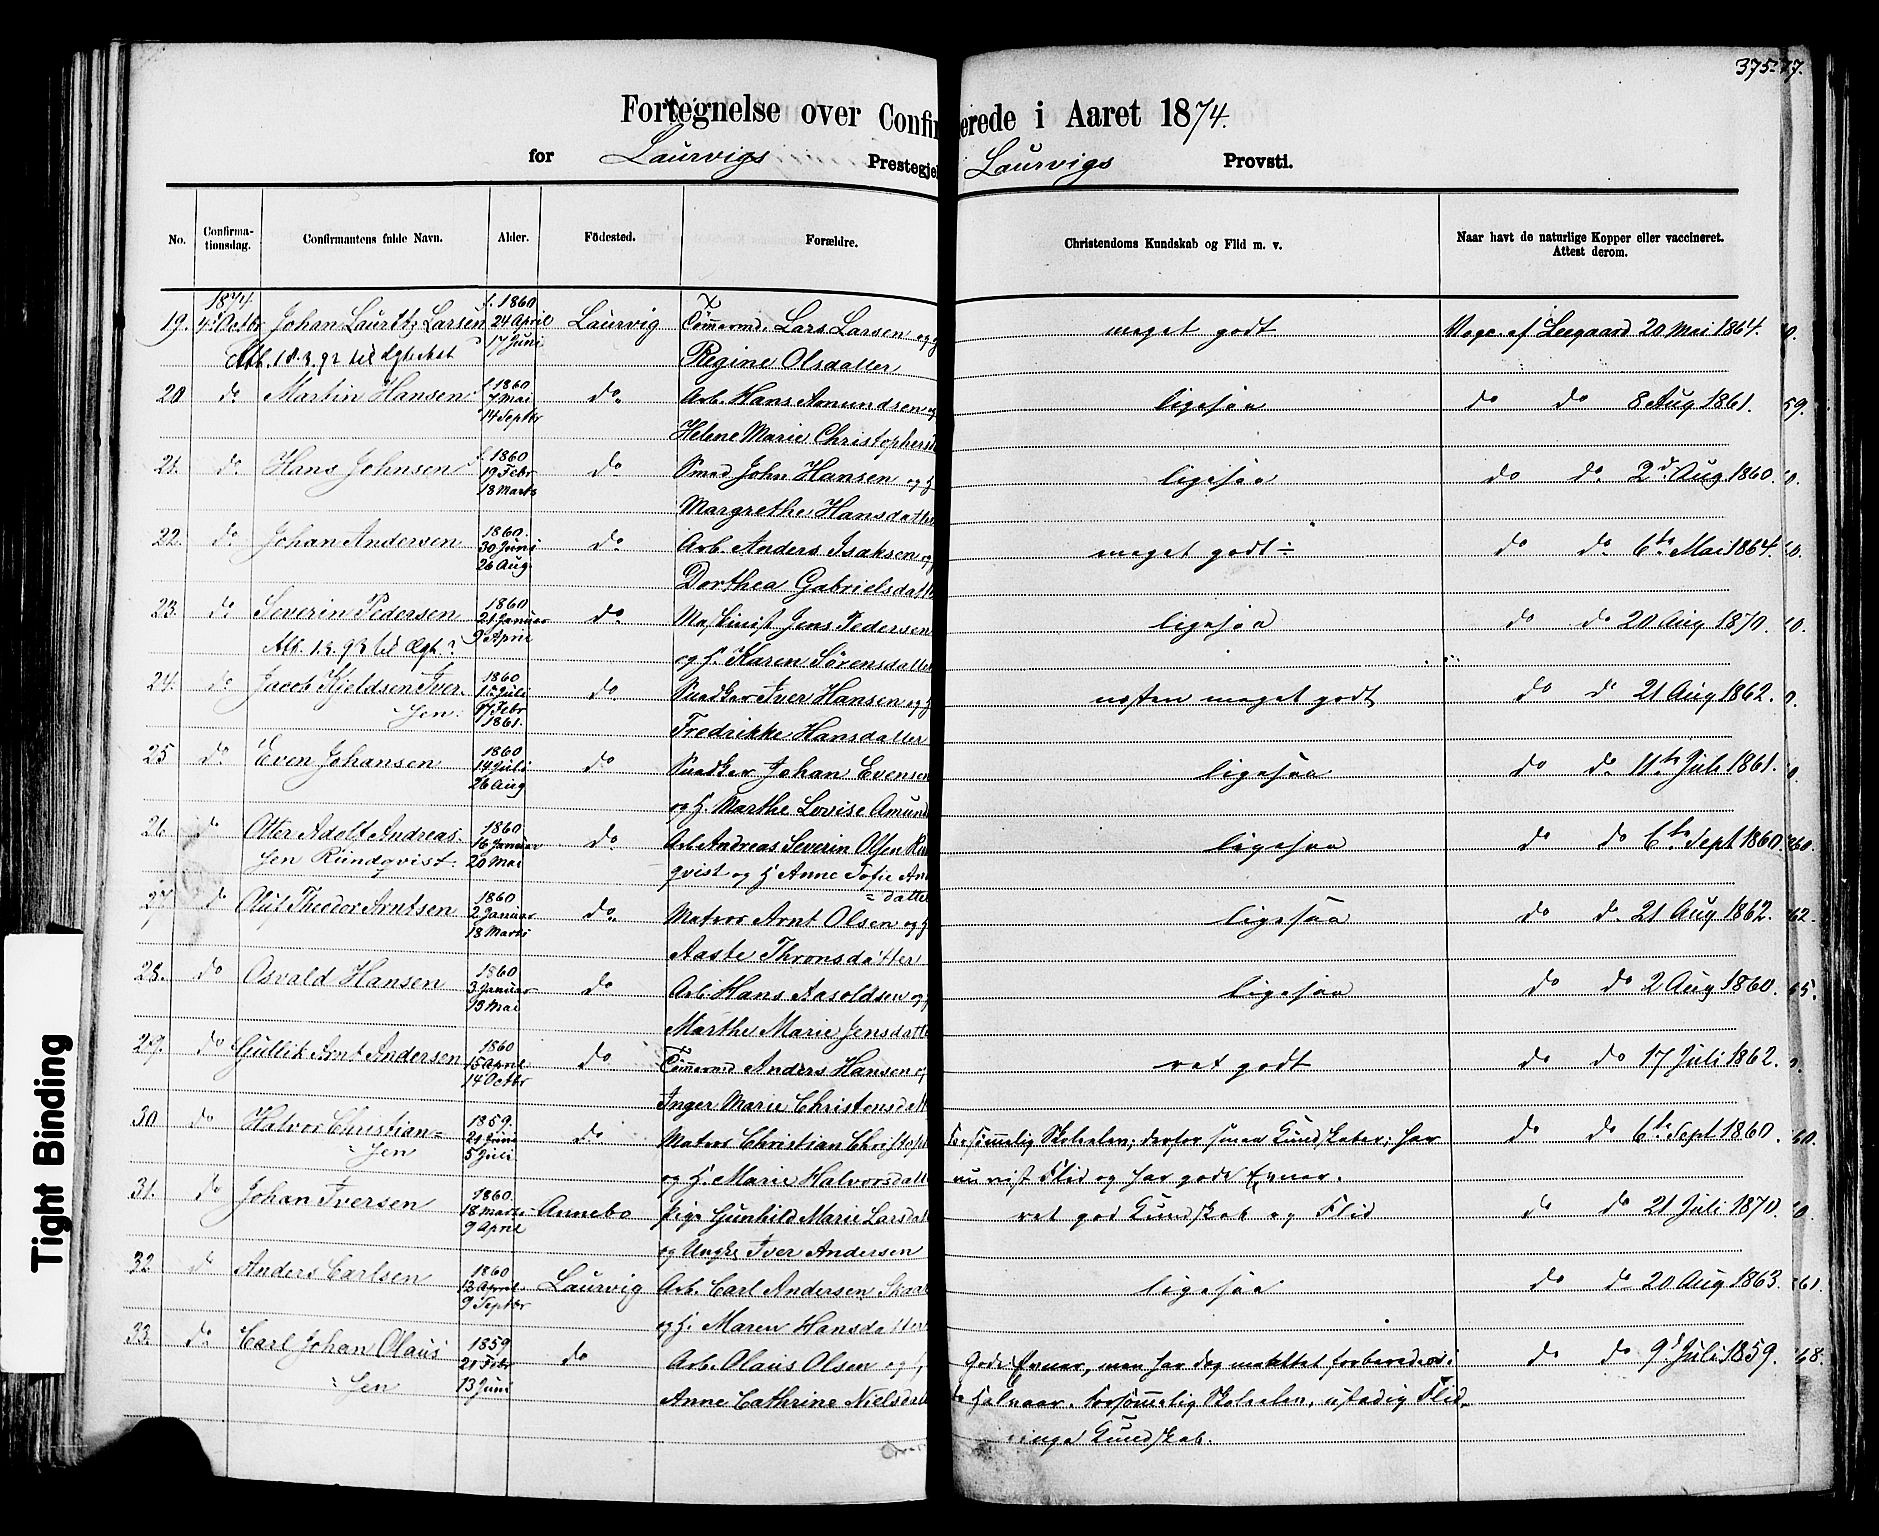 375-77.
Fortegnelse over Confirmerede i Aaret 1874.
for Laurvigs Prestegjel Laurvigs Provsti.
No. Confirma-tionsdag. Confirmantens fulde Navn. Alder. Födested. Forældre. Christendoms Kundskab og Flid m. v. Naar havt de naturlige Kopper eller vaccineret. Attest derom.
19. 1874 4de Octbr Johan Lauritz Larsen f. 1860 24 April 17 Juni Laurvig Tömermd. Lars Larsen og H meget godt Vacc. af Leegaard 20 Mai 1864.
Att. 18.3.92 til Ægteskab Regine Olsdatter
20 do Martin Hansen f. 1860 7 Mai 14 Septbr do Arb. Hans Amundsen og ligesaa do do 8 Aug 1861. 59.
Helene Marie Christophersd
21. do Hans Johnsen f. 1860 19 Febr 18 Marts do Smed John Hansen og H ligesaa do do 2d Aug 1860.
Margrethe Hansdatter
22. do Johan Andersen 1860. 30 Juni 26 Aug. do Arb. Anders Isaksen og meget godt ÷ do do 6te Mai 1864.
Dorthea Gabrielsdatt
23. do Severin Pedersen 1860 21 Januar 9 April do Maskinist Jens Pedersen ligesaa do do 20 Aug 1870.
Att. 1.3.93 til Ægt. og H. Karen Sörensdatter
24. do Jacob Kjeldsen Iver- 1860 11 Juli 17 Febr 1861. do Snedker Iver Hansen og H næsten meget godt do do 21 Aug 1862.
sen. Fredrikke Hansdatter
25 do Even Johansen 1860 14 Juli 26 Aug do Snedker Johan Evensen ligesaa do do 11te Juli 1861.
og H. Marthe Lovise Amund
26 do Otter Adolf Andreas- 1860 16 Januar 20 Mai do Arb Andreas Severin Olsen Run ligesaa do do 6te Sept 1860. 60.
sen Rundqvist. qvist og H Anne Sofie An
= datte
27 do Oluf Theodor Arntsen 1860 2 Januar 18 Marts do Matros Arnt Olsen og H ligesaa do do 21 Aug 1862. 62.
Aaste Thronsdatter
28. do Osvald Hansen 1860 3 Januar 13 Mai do Arb. Hans Aasoldsen og ligesaa do do 2 Aug 1860. 65.
Marthe Marie Jensdatte
29. do Gullik Arnt Andersen 1860 15 April 14 Octbr do Tömermd Anders Hansen og ret godt do do 17 Juli 1862.
Inger Marie Christensdatt
30 do Halvor Christian= 1859. 21 Juni 5 Juli do Matros Christian Christoph forsömmelig Skolesøen; derfor smaa Kundskaber; har do do 6te Sept 1860. 60.
= sen og H. Marie Halvorsdatt nu vist Flid og har gode Evner.
31. do Johan Iversen 1860. 18 Marts 9 April Annebo Pige Gunhild Marie Larsdatt ret god Kundskab og Flid do do 21 Juli 1870.
og Ungk. Iver Andersen
32 do Anders Carlsen 1860 12 April 9 Septbr Laurvig Arb. Carl Andersen ligesaa do do 20 Aug 1863. 61.
og H. Maren Hansdatter
33. do Carl Johan Olaus 1859 21 Febr 13 Juni do Arb. Olaus Olsen og H gode Evner, men har dog maattet forberedes i do do 9d Juli 1859. 68.
= sen Anne Cathrine Nielsdatt Halvaar. forsömmelig ustadig Flid,
ringe Kundskab.
Tight Binding